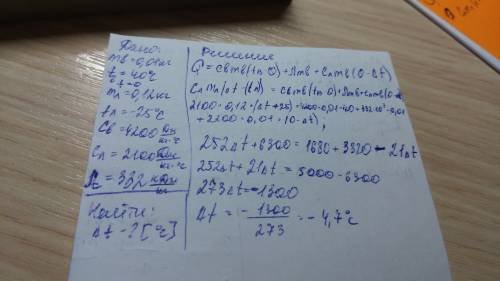 Дано:
mв=0,01кг
t=40°C
t=0
mл=0,12кг
tл=-25°C
Cв=4200 Дж/кг·°C
Cл=2100 Дж/кг·°C
λ=332 кДж/кг
Найти:
Δt-?[°C]
Решение
Q=cвmв(tn-0)+λmв+cлmв(0-Δt)
Cлmл(Δt-tл)=cвmв(tn-0)+λmв+cлmв(0-
2100·0,12·(Δt+25)=4200·0,01·40+332·10³·0,01
+2200·0,01·(0-Δt),
252Δt+6300=1680+3320-21Δt
252Δt+21Δt=5000-6300
273Δt=-1300
Δt=-1300/273=-4,7°C